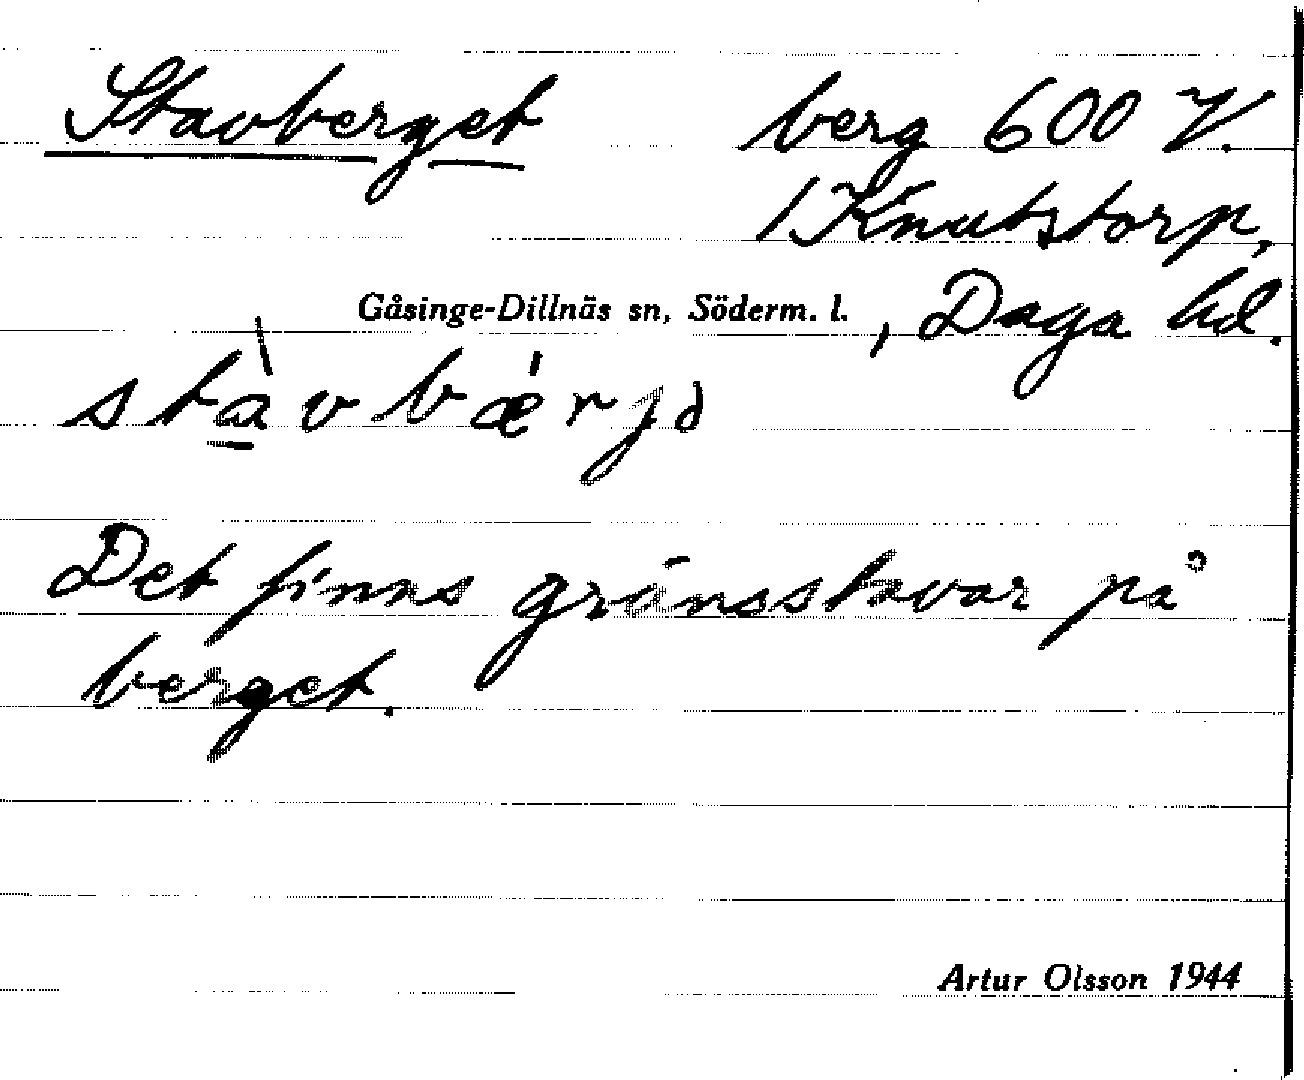 Stavberget berg 600 V.
/ Knutstorp,
Gåsinge-Dillnäs sn, Söderm. l. , Daga hd.
stàvbǽrjə
Det finns gränsstavar på
berget.
Artur Olsson 1944